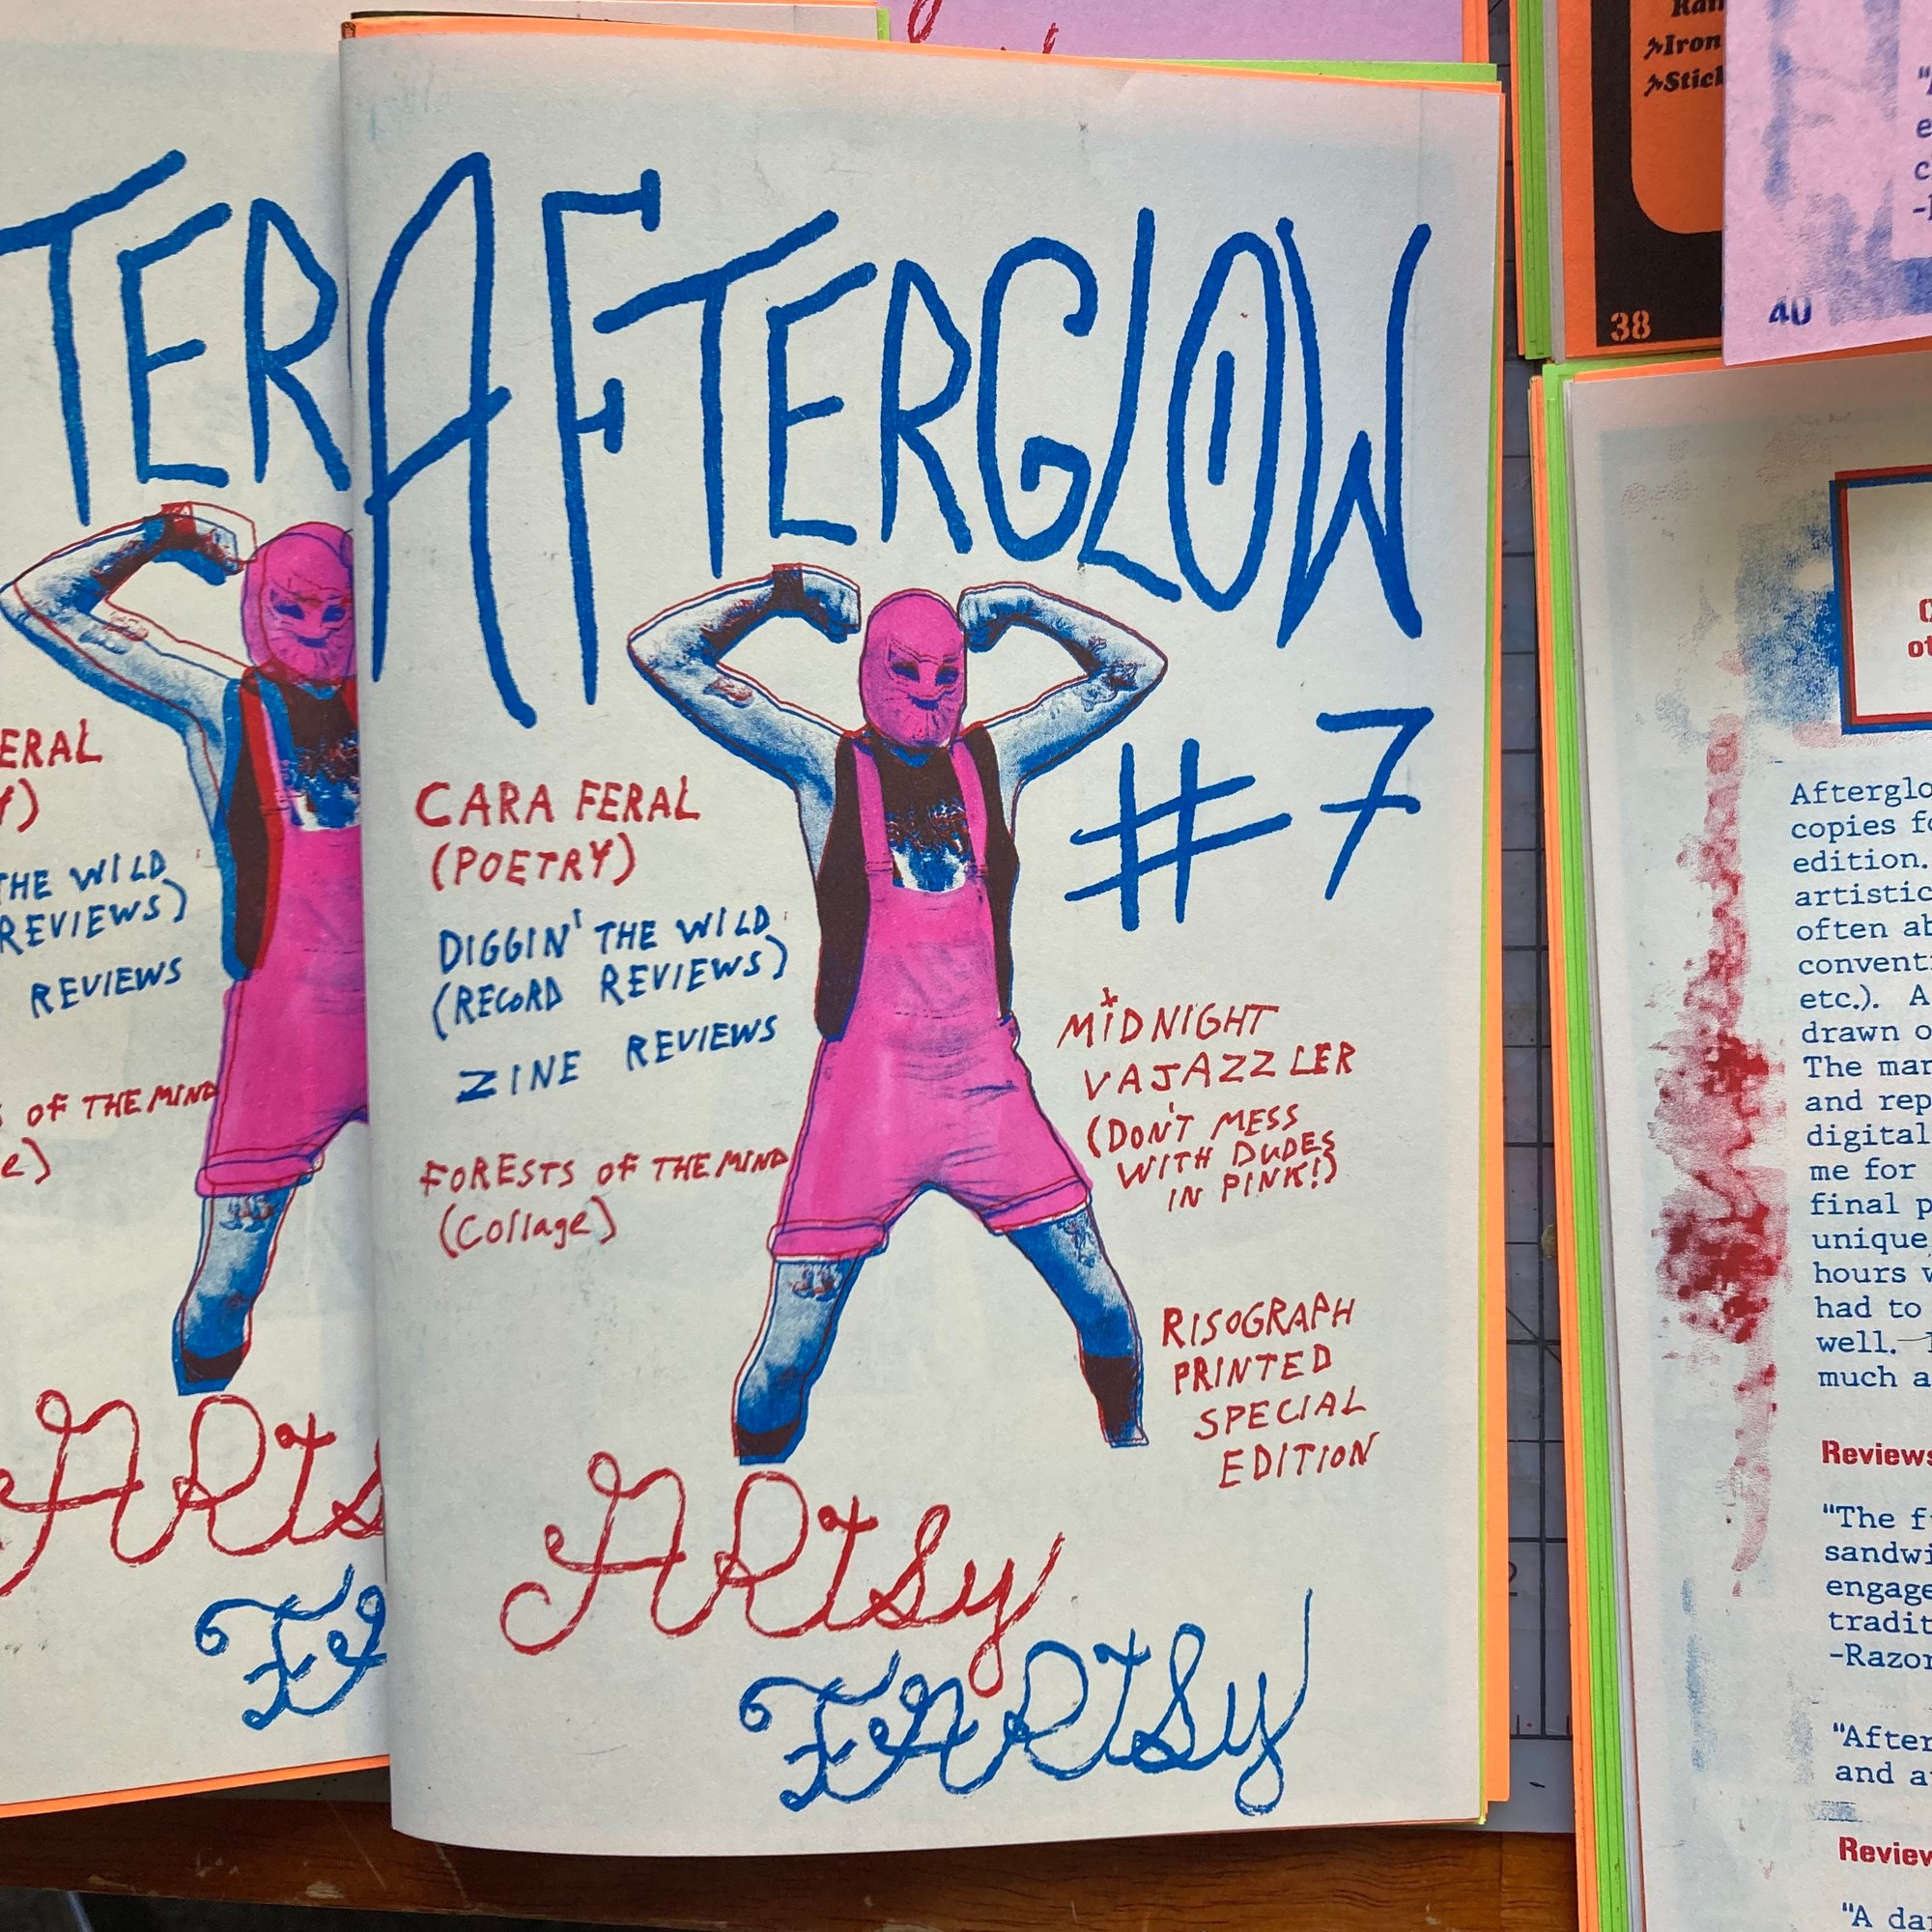 TER
ERAL
THE WILD
REVIEWS)
REVIEWS
OF THE MIND
e)
ARTS
AFTERGLOW
#7
CARA FERAL
(POETRY)
DIGGIN' THE WILD
(RECORD REVIEWS)
ZINE REVIEWS
FORESTS OF THE MIND
(Collage)
MIDNIGHT
VAJAZZLER
(DON'T MESS
WITH DUDES
IN PINK!)
RISOGRAPH
PRINTED
SPECIAL
EDITION
ARTSY
FARTSY
Iron
Stick
38
40
Afterglo
copies fo
edition.
artistic
often ab
conventi
etc.). A
drawn o
The man
and rep
digital
me for
final p
unique
hours w
had to
well.
much a
Reviews
"The f
sandwi
engage
tradit
-Razor
"After
and a
Review
"A da